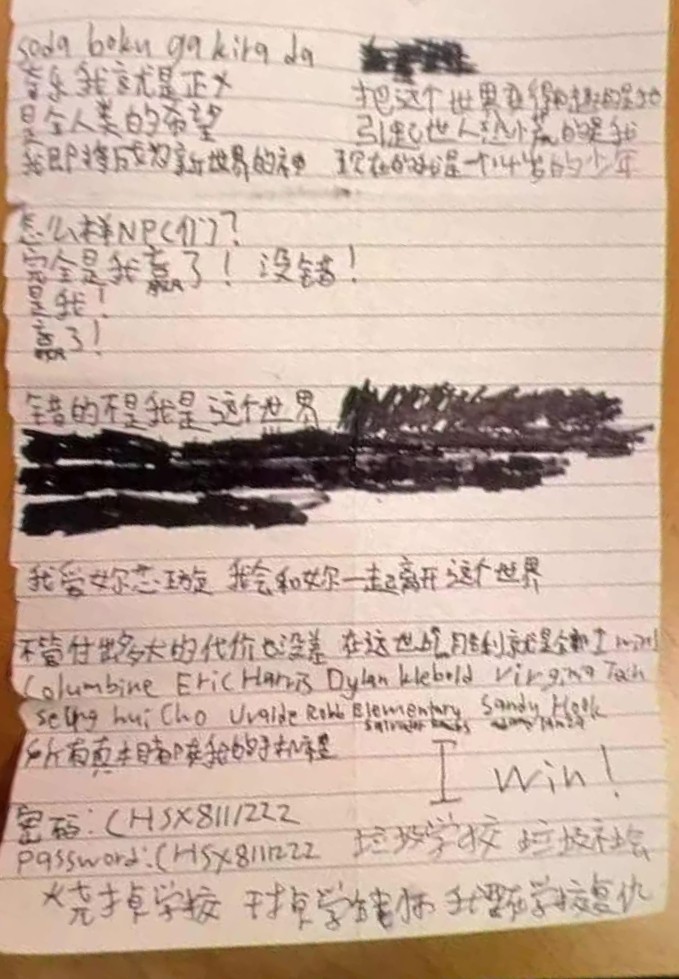 soda boku ga kira da
我就是正义
是全人类的希望
引起世人 的是我
我即将成为新世界的神 现在的我是一个14岁的少年
怎么样NPC们?
完全是我赢了! 没错!
是我!
赢了!
错的不是我是这个世界
我爱你 我会和你一起离开这个世界
不管付出多大的代价也没差 在这世上胜利就是全部 I win!
Columbine Eric Harris Dylan klebold Virgina Tech
Seung hui Cho Uvalde Robb Elementary Sandy Hook
所有真相都在我的手机里
I win!
密码: CHSX8111222
password: CHSX8111222 垃圾学校 垃圾社会
烧掉学校 干掉学 我要在学校复仇